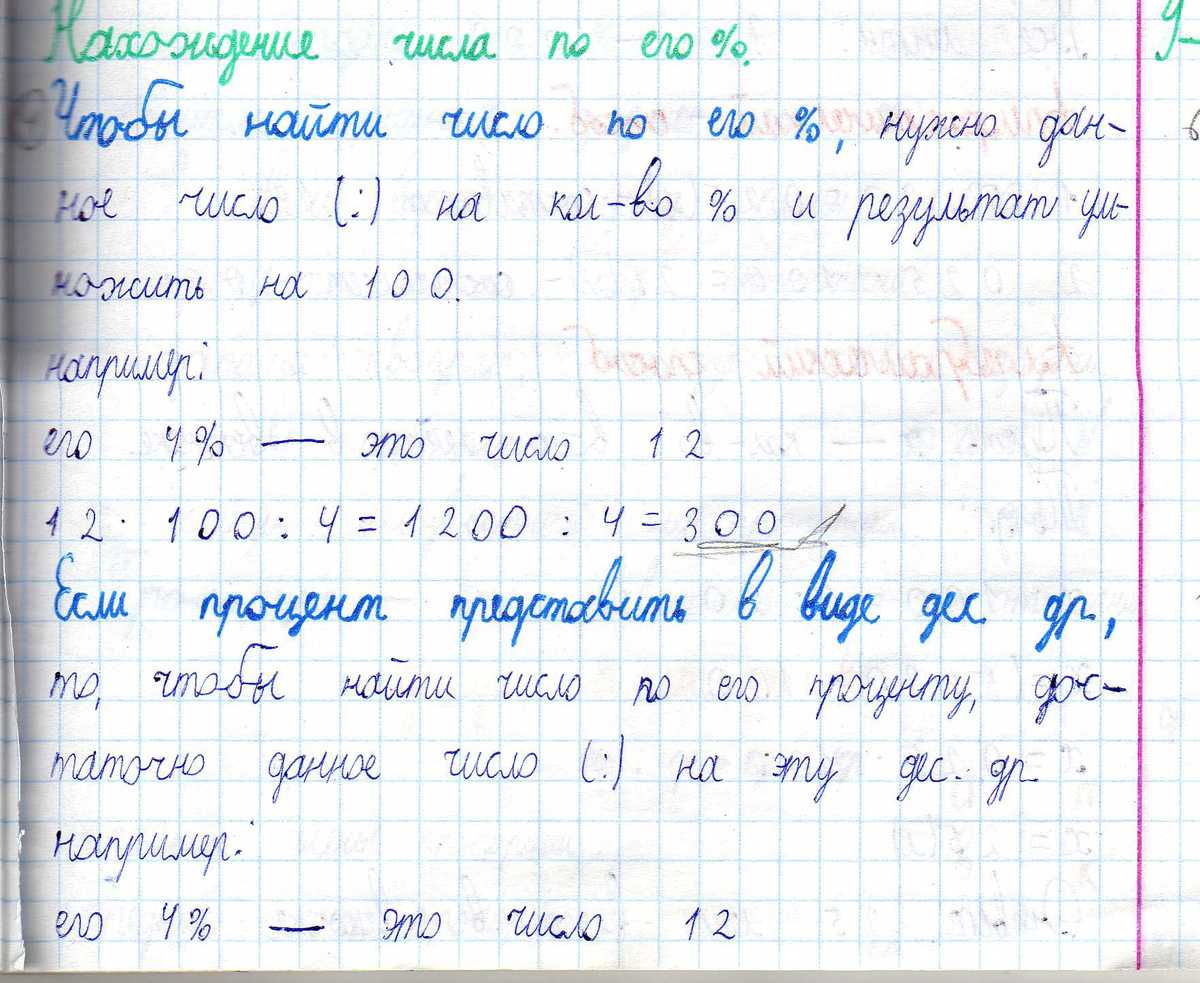 Нахождение числа по его %.
Чтобы найти число по его %, нужно дан-
ное число (:) на кол-во % и результат ум-
ножить на 100.
например:
его 4% — это число 12
12 · 100 : 4 = 1200 : 4 = 300
Если процент представить в виде дес. др.,
то, чтобы найти число по его проценту, дос-
таточно данное число (:) на эту дес. др.
например:
его 4% — это число 12